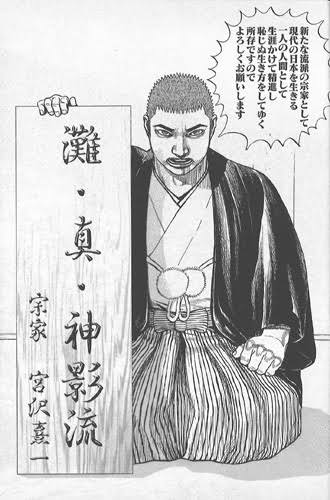 新たな流派の宗家として
現代の日本を生きる
一人の人間として
生涯かけて精進し
恥じぬ生き方をしてゆく
所存ですので
よろしくお願いします
灘・真・神影流
宗家 宮沢喜一